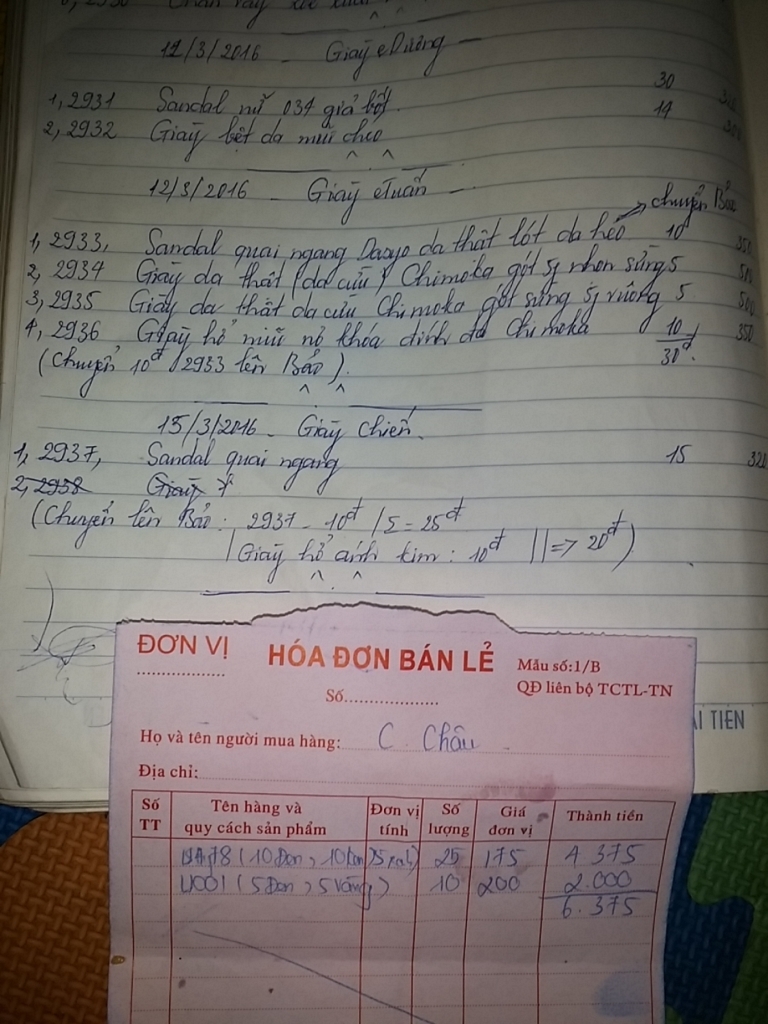 12/3/2016 - Giày c Dường -
1, 2931 Sandal nữ 034 giả bột. 30
2, 2932 Giày bệt da mũi chéo 14
12/3/2016 - Giày c Tuấn -
chuyển Bảo
1, 2933, Sandal quai ngang da thật lót da heo 10đ 350
2, 2934 Giày da thật (da cừu) Chimoka gót 5f nhọn sừng 5 500
3, 2935 Giày da thật da cừu Chimoka gót sừng 5f vuông 5 500
4, 2936 Giày hở mũi nơ khóa dính đá Chimoka 10 350
30đ
(Chuyển 10đ 2933 lên Bảo).
15/3/2016 - Giày Chiến.
1, 2937, Sandal quai ngang 15 320
2, 2938 Giày
(Chuyển lên Bảo: 2937 - 10đ / Σ = 25đ
Giày hở ánh kim: 10đ ||=> 20đ)
ĐƠN VỊ
HÓA ĐƠN BÁN LẺ
Mẫu số:1/B
QĐ liên bộ TCTL-TN
Số
Họ và tên người mua hàng: C. Châu
Địa chỉ:
Số TT Tên hàng và quy cách sản phẩm Đơn vị tính Số lượng Giá đơn vị Thành tiền
(10 Đen, 10 kem, 5 xanh) 25 175 4 375
U001 (5 Đen, 5 vàng) 10 200 2.000
6.375